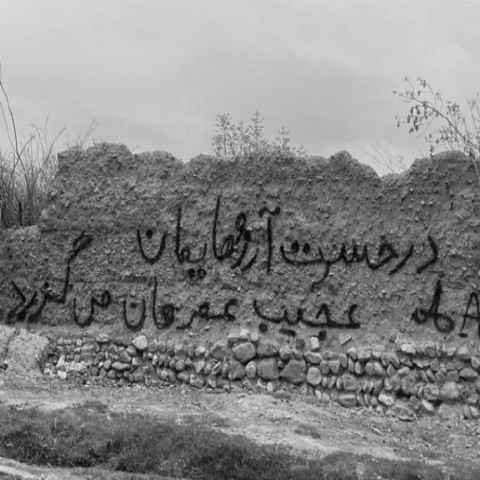 در حسرت آرزوهایمان
عجیب عمرمان می گذرد